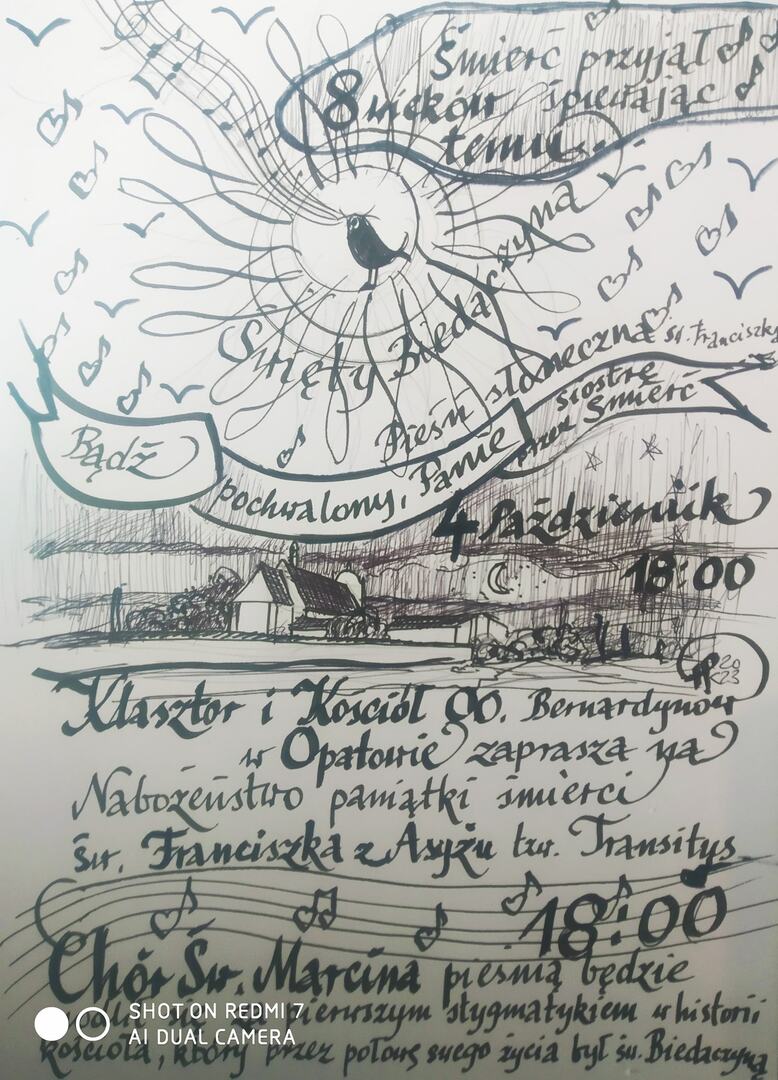 Śmierć przyjął
8 wieków śpiewając
temu...
Święty Biedaczyna
Pieśń słoneczna św. Franciszka
Bądź
pochwalony, Panie
przez siostrę
Śmierć
4 Październik
18:00
2023
Klasztor i Kościół OO. Bernardynów
w Opatowie zaprasza na
Nabożeństwo pamiątki śmierci
św. Franciszka z Asyżu tzw. Transitus
18:00
Chór Św. Marcina pieśnią będzie
pierwszym stygmatykiem w historii
kościoła, który przez połowę swego życia był św. Biedaczyną
SHOT ON REDMI 7
AI DUAL CAMERA